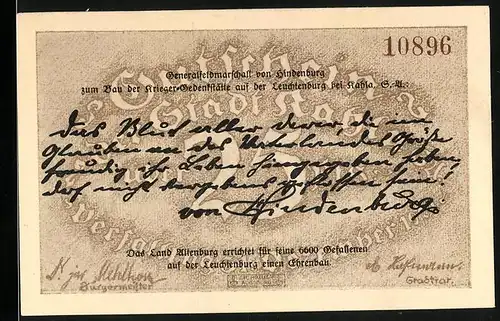 10896
Generalfeldmarschall von Hindenburg
zum Bau der Krieger-Gedenkstätte auf der Leuchtenburg bei Kahla, S.-A.:
Gutschein
Stadt Kahla
Das Blut aller derer, die im
Glauben an des Vaterlandes Größe
freudig ihr Leben hingegeben haben,
darf nicht vergebens geflossen sein!
von Hindenburg
Das Land Altenburg errichtet für seine 6600 Gefallenen
auf der Leuchtenburg einen Ehrenbau.
Bürgermeister
Stadtrat